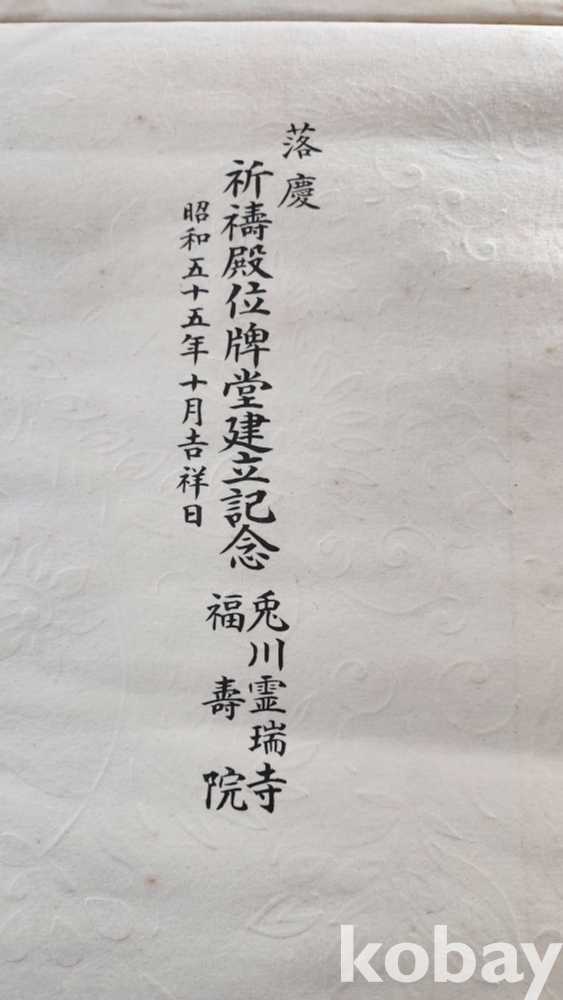 落慶
祈禱殿位牌堂建立記念
兎川霊瑞寺
福壽院
昭和五十五年十月吉祥日
kobay